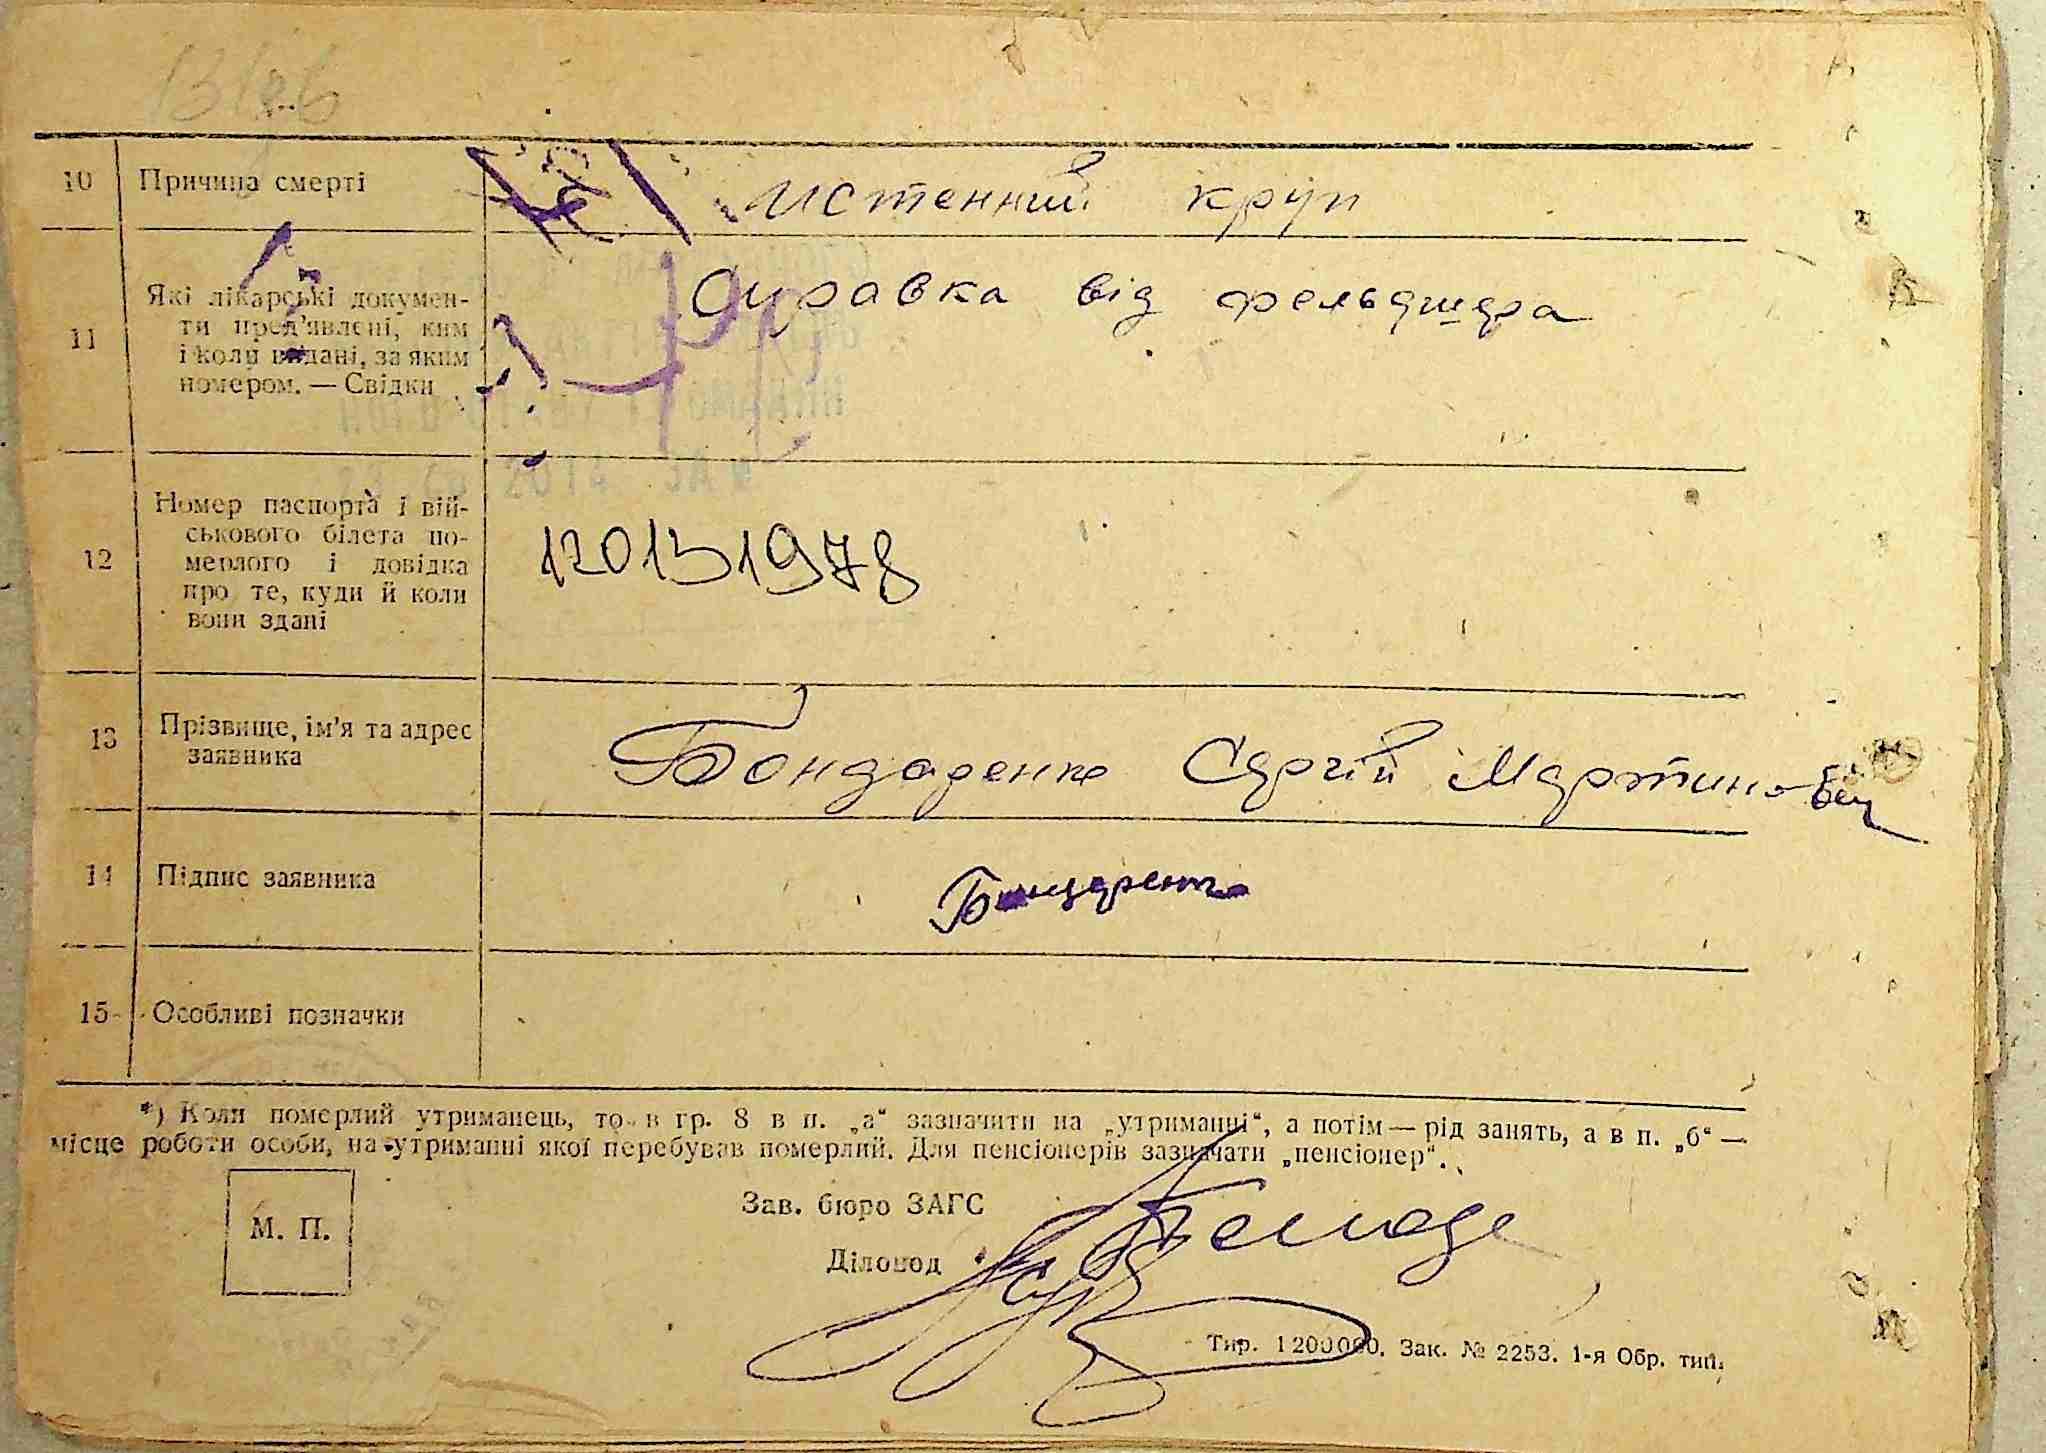 10 Причина смерті Истенний круп
11 Які лікарські докумен-
ти пред'явлені, ким
і коли видані, за яким
номером. — Свідки
Справка від фельдшера
12 Номер паспорта і вій-
ськового білета по-
мерлого і довідка
про те, куди й коли
вони здані
12013 1978
13 Прізвище, ім'я та адрес
заявника
Бондаренко Сергій Мартинович
14 Підпис заявника Бондаренко
15 Особливі позначки
*) Коли померлий утриманець, то в гр. 8 в п. „а“ зазначити на „утриманні“, а потім — рід занять, а в п. „б“ —
місце роботи особи, на утриманні якої перебував померлий. Для пенсіонерів зазначати „пенсіонер“.
М. П.
Зав. бюро ЗАГС
Діловод
Тир. 1200000. Зак. № 2253. 1-я Обр. тип.